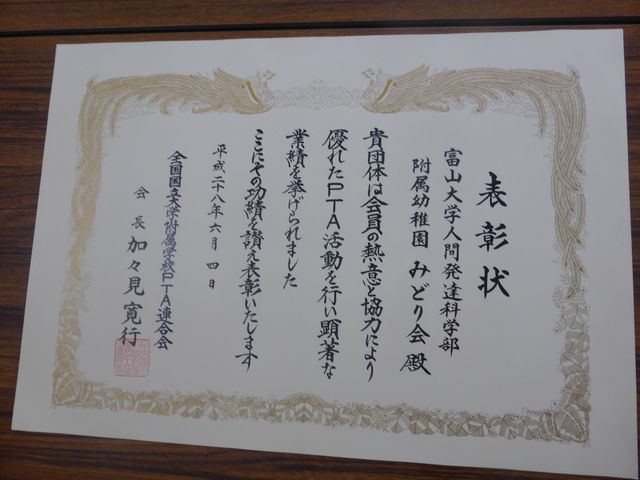 表彰状
富山大学人間発達科学部
附属幼稚園 みどり会 殿
貴団体は会員の熱意と協力により
優れたPTA活動を行い顕著な
業績を挙げられました
ここにその功績を讃え表彰いたします
平成二十八年六月四日
全国国立大学附属学校PTA連合会
会長 加々見寛行